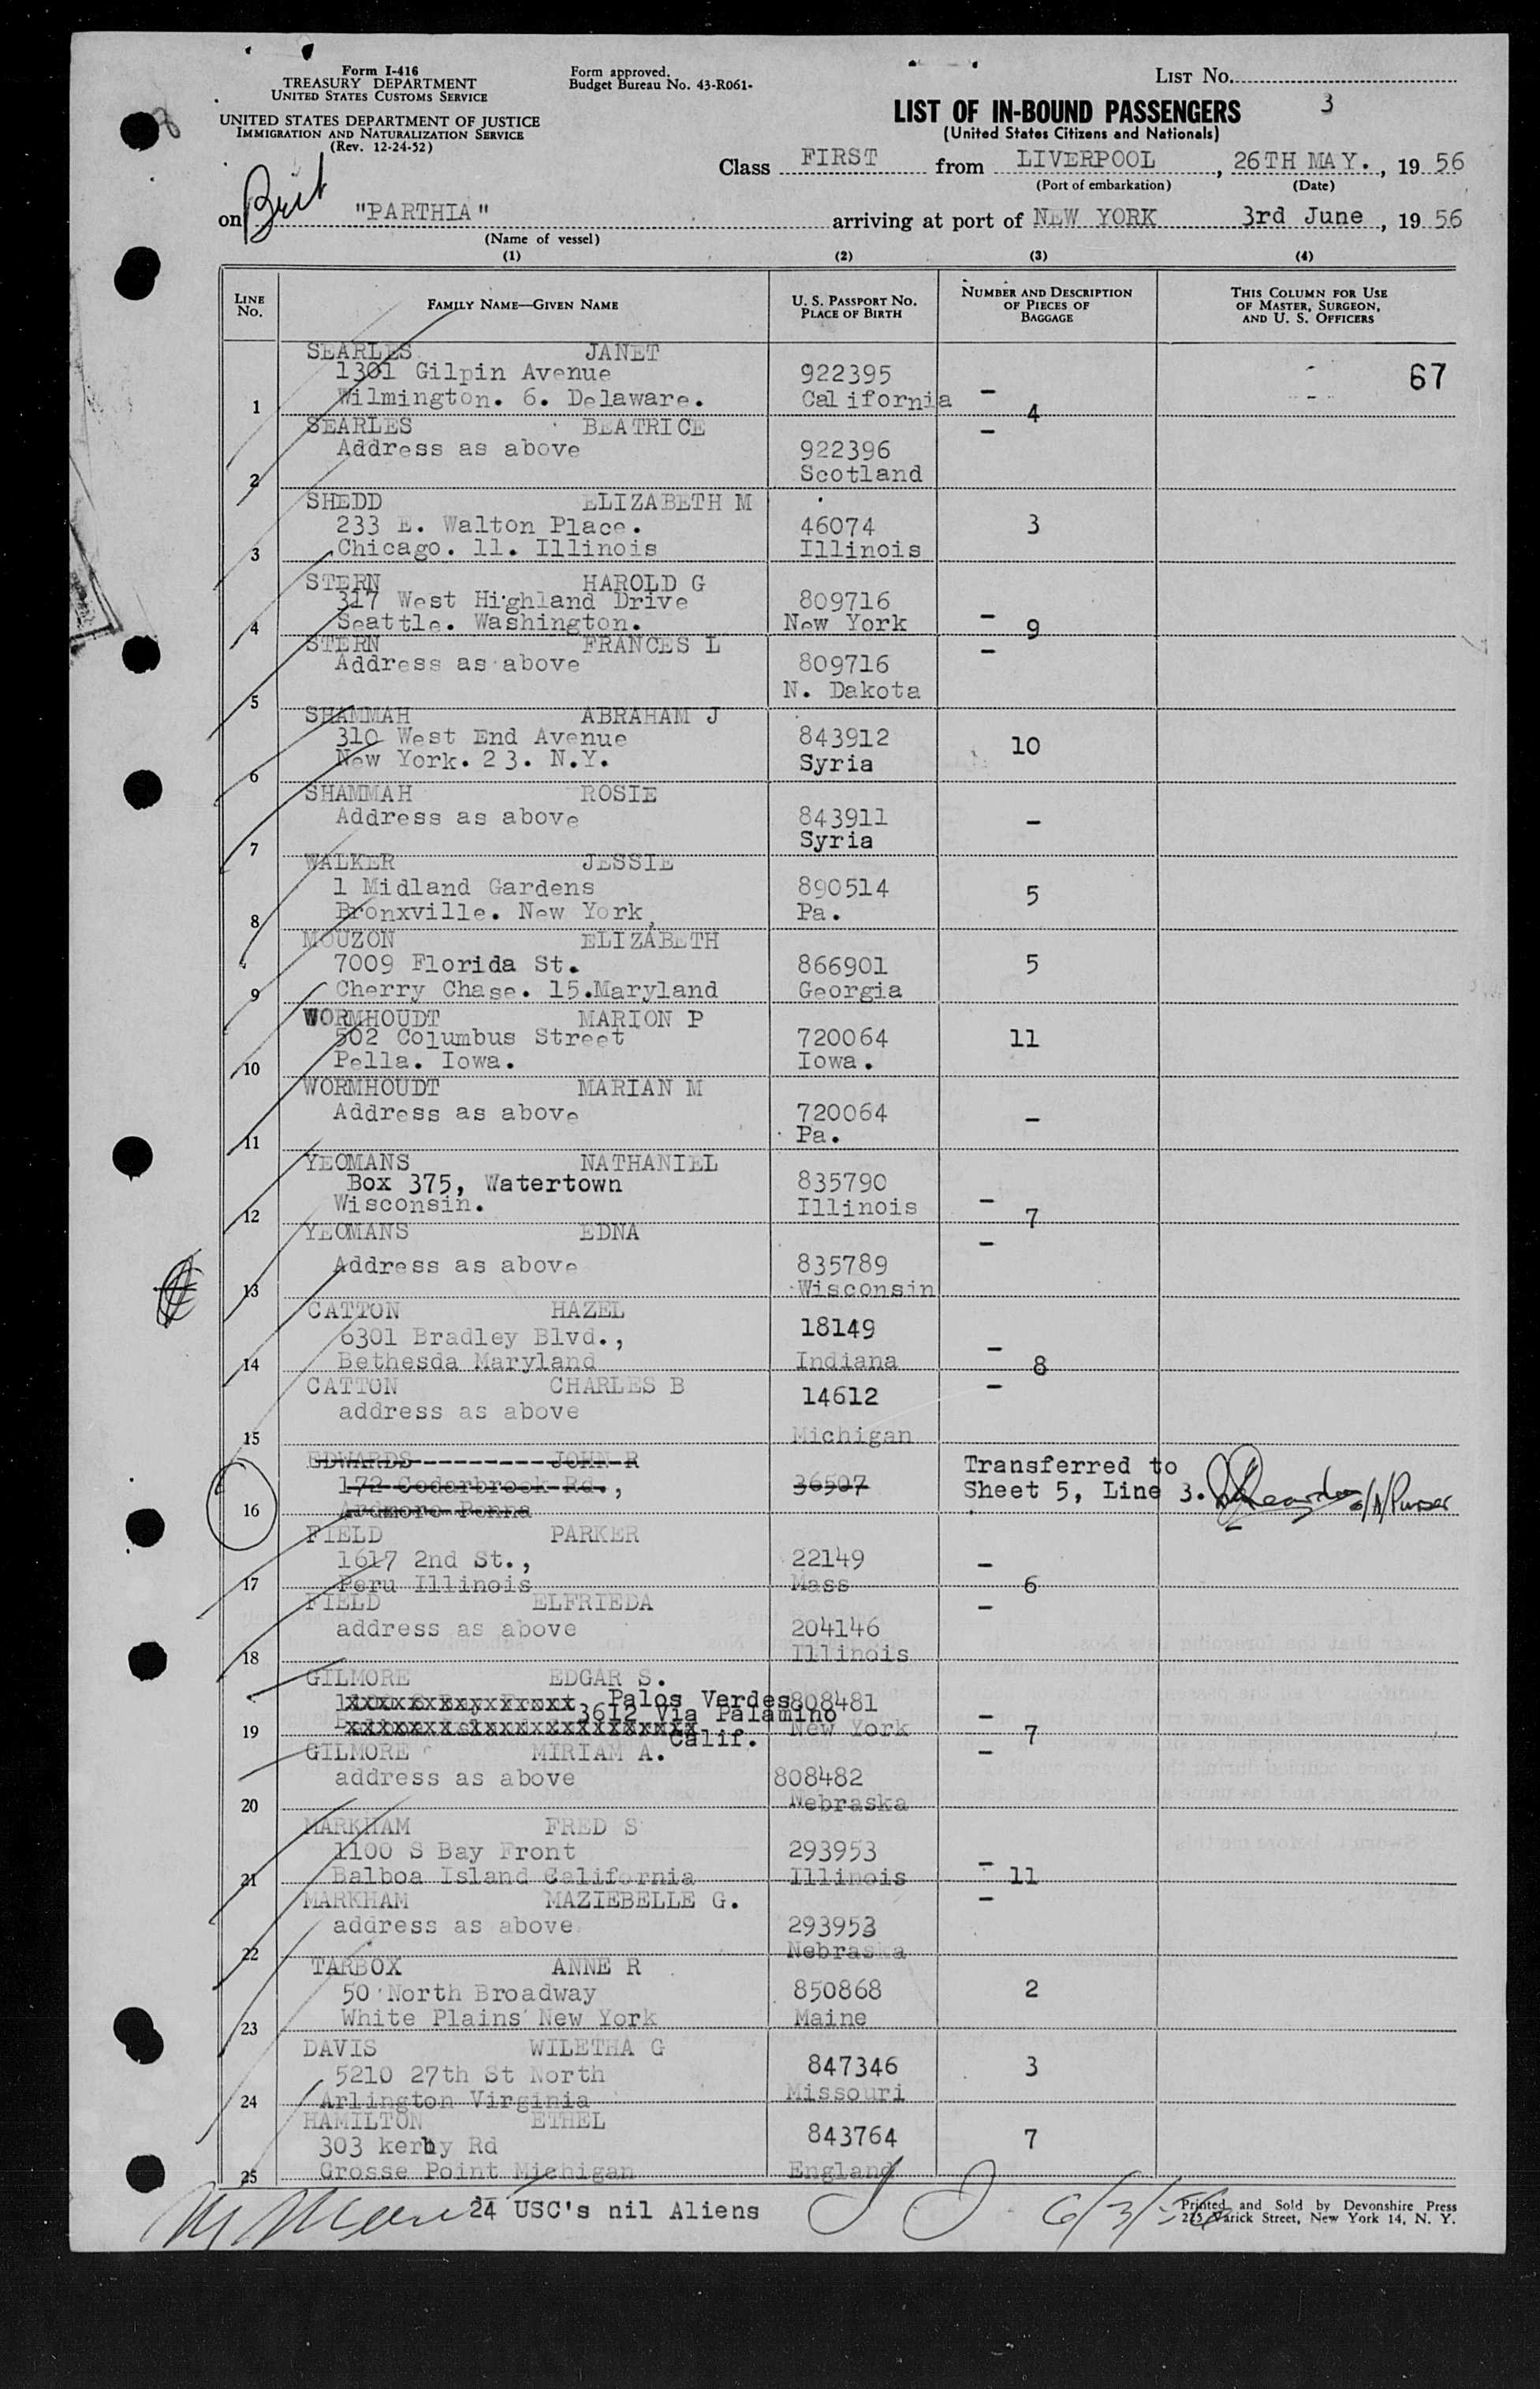 Form I-416
TREASURY DEPARTMENT
UNITED STATES CUSTOMS SERVICE
UNITED STATES DEPARTMENT OF JUSTICE
IMMIGRATION AND NATURALIZATION SERVICE
(Rev. 12-24-52)
Form approved.
Budget Bureau No. 43-R061-
LIST NO.
3
LIST OF IN-BOUND PASSENGERS
(United States Citizens and Nationals)
Class FIRST from LIVERPOOL, 26TH MAY., 19 56
(Port of embarkation) (Date)
on Brit "PARTHIA" arriving at port of NEW YORK 3rd June, 19 56
(Name of vessel)
(1) (2) (3) (4)
LINE No. FAMILY NAME—GIVEN NAME U. S. PASSPORT NO. PLACE OF BIRTH NUMBER AND DESCRIPTION OF PIECES OF BAGGAGE THIS COLUMN FOR USE OF MASTER, SURGEON, AND U. S. OFFICERS
SEARLES JANET
1301 Gilpin Avenue 922395 67
1 Wilmington. 6. Delaware. California - 4
SEARLES BEATRICE -
Address as above 922396
2 Scotland
SHEDD ELIZABETH M
233 E. Walton Place. 46074 3
3 Chicago. 11. Illinois Illinois
STERN HAROLD G
317 West Highland Drive 809716
4 Seattle. Washington. New York - 9
STERN FRANCES L -
Address as above 809716
5 N. Dakota
SHAMMAH ABRAHAM J
310 West End Avenue 843912 10
6 New York. 23. N.Y. Syria
SHAMMAH ROSIE
Address as above 843911 -
7 Syria
WALKER JESSIE
1 Midland Gardens 890514 5
8 Bronxville. New York, Pa.
MOUZON ELIZABETH
7009 Florida St. 866901 5
9 Cherry Chase. 15.Maryland Georgia
WORMHOUDT MARION P
502 Columbus Street 720064 11
10 Pella. Iowa. Iowa.
WORMHOUDT MARIAN M
Address as above 720064 -
11 Pa.
YEOMANS NATHANIEL
Box 375, Watertown 835790
12 Wisconsin. Illinois - 7
YEOMANS EDNA -
Address as above 835789
13 Wisconsin
CATTON HAZEL
6301 Bradley Blvd., 18149
14 Bethesda Maryland Indiana - 8
CATTON CHARLES B -
address as above 14612
15 Michigan
EDWARDS JOHN R Transferred to
172 Cedarbrook Rd., 36507 Sheet 5, Line 3.
16 Ardmore Penna
FIELD PARKER
1617 2nd St., 22149
17 Peru Illinois Mass - 6
FIELD ELFRIEDA -
address as above 204146
18 Illinois
GILMORE EDGAR S.
Palos Verdes 808481
3612 Via Palamino
19 Calif. New York - 7
GILMORE MIRIAM A. -
address as above 808482
20 Nebraska
MARKHAM FRED S
1100 S Bay Front 293953
21 Balboa Island California Illinois - 11
MARKHAM MAZIEBELLE G. -
address as above 293953
22 Nebraska
TARBOX ANNE R
50 North Broadway 850868 2
23 White Plains New York Maine
DAVIS WILETHA G
5210 27th St North 847346 3
24 Arlington Virginia Missouri
HAMILTON ETHEL
303 kerby Rd 843764 7
25 Grosse Point Michigan England
24 USC's nil Aliens 6/3/56
Printed and Sold by Devonshire Press
225 Varick Street, New York 14, N. Y.